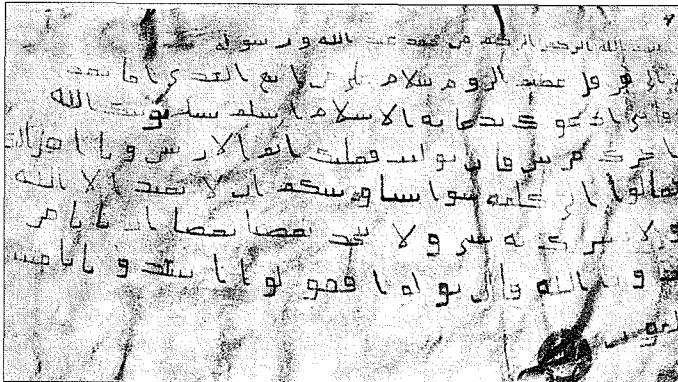 بسم الله الرحمن الرحيم من محمد عبد الله ورسوله
الى هرقل عظيم الروم سلام على من اتبع الهدى اما بعد
فاني ادعوك بدعاية الاسلام اسلم تسلم يوتك الله
اجرك مرتين فان توليت فعليك اثم الاريسين ويا اهل الكتب
تعالوا الى كلمة سوا بيننا وبينكم ان لا نعبد الا الله
ولا نشرك به شي ولا يتخذ بعضنا بعضا اربابا من
دون الله فان تولوا فقولوا اشهدوا بانا مس
لمون